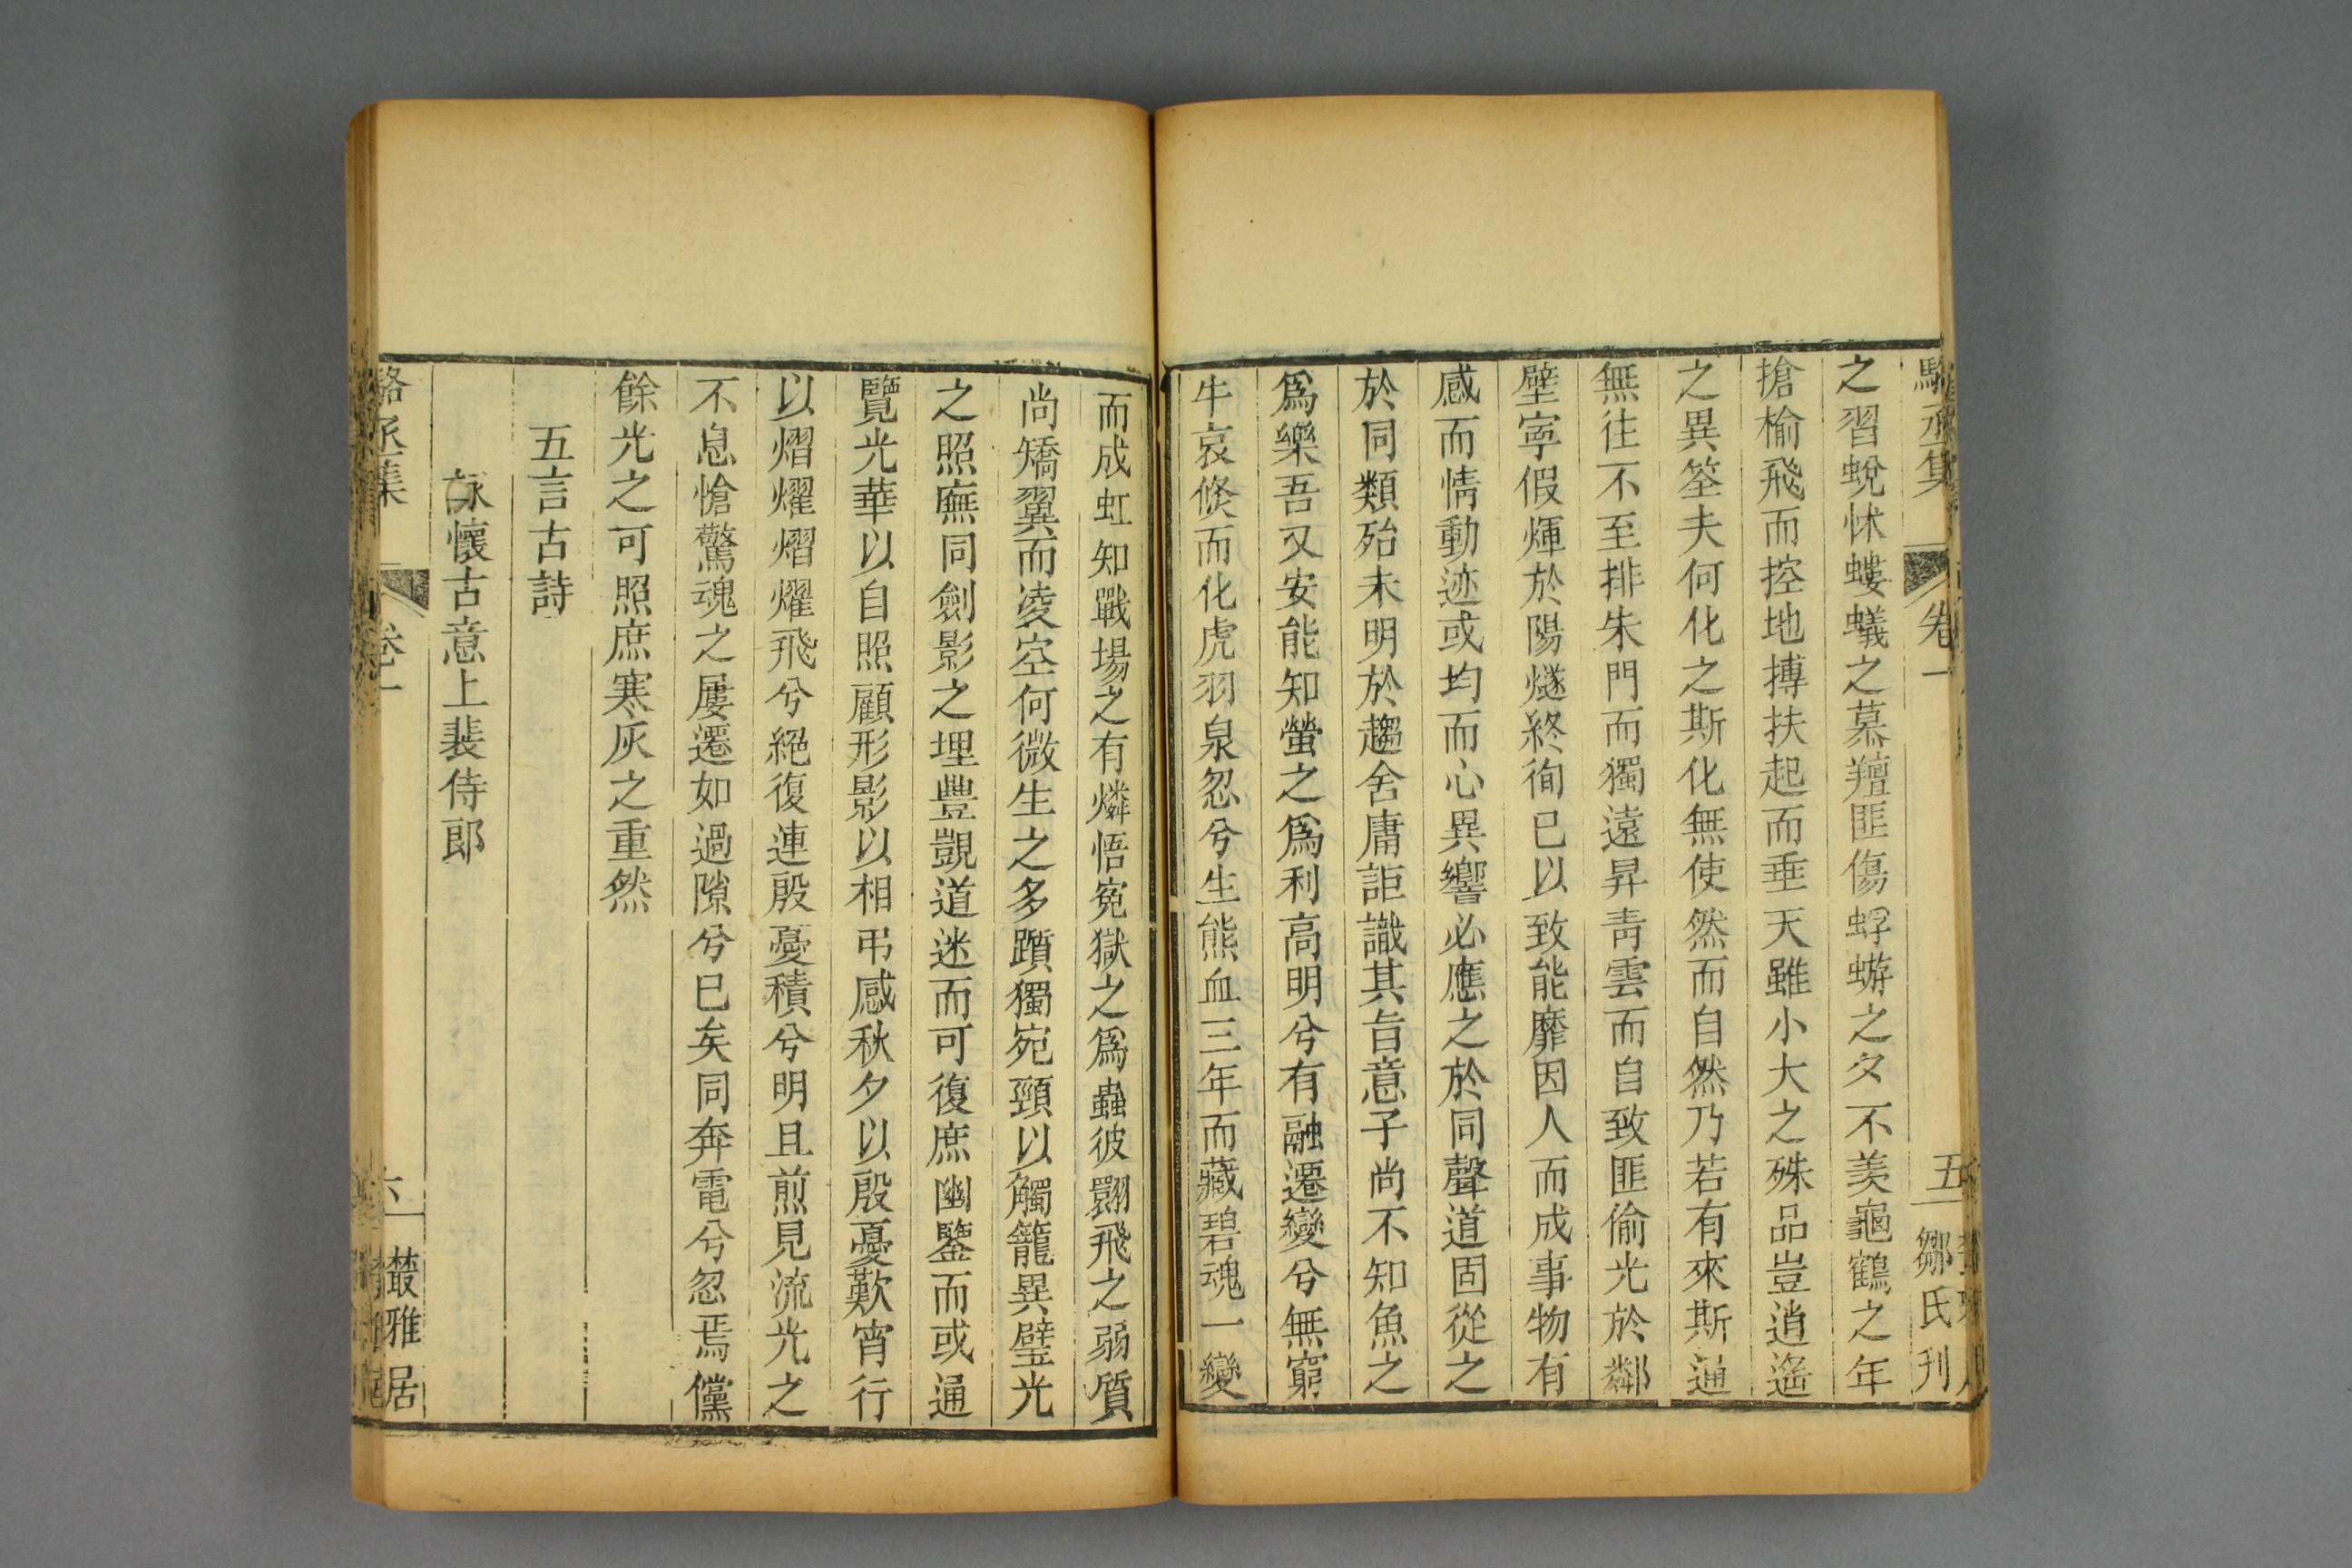 駱丞集 卷一 五 鄒氏刊
之習蛻怵螻蟻之慕羶匪傷蜉蝣之夕不羡龜鶴之年
搶榆飛而控地搏扶起而垂天雖小大之殊品豈逍遙
之異筌夫何化之斯化無使然而自然乃若有來斯通
無往不至排朱門而獨遠昇青雲而自致匪偷光於鄰
壁寧假煇於陽燧終徇已以致能靡因人而成事物有
感而情動迹或均而心異響必應之於同聲道固從之
於同類殆未明於趨舍庸詎識其旨意子尚不知魚之
爲樂吾又安能知螢之爲利高明兮有融遷變兮無窮
牛哀倏而化虎羽泉忽兮生熊血三年而藏碧魂一變
而成虹知戰場之有燐悟宛獄之爲蟲彼翾飛之弱質
尚矯翼而凌空何微生之多躓獨宛頸以觸籠異璧光
之照廡同劍影之埋豐覬道迷而可復庶幽鑒而或通
覽光華以自照顧形影以相弔感秋夕以殷憂歎宵行
以熠燿熠燿飛兮絕復連殷憂積兮明且煎見流光之
不息愴驚魂之屢遷如過隙兮已矣同奔電兮忽焉儻
餘光之可照庶寒灰之重然
五言古詩
詠懷古意上裴侍郎
駱丞集 卷一 六 叢雅居